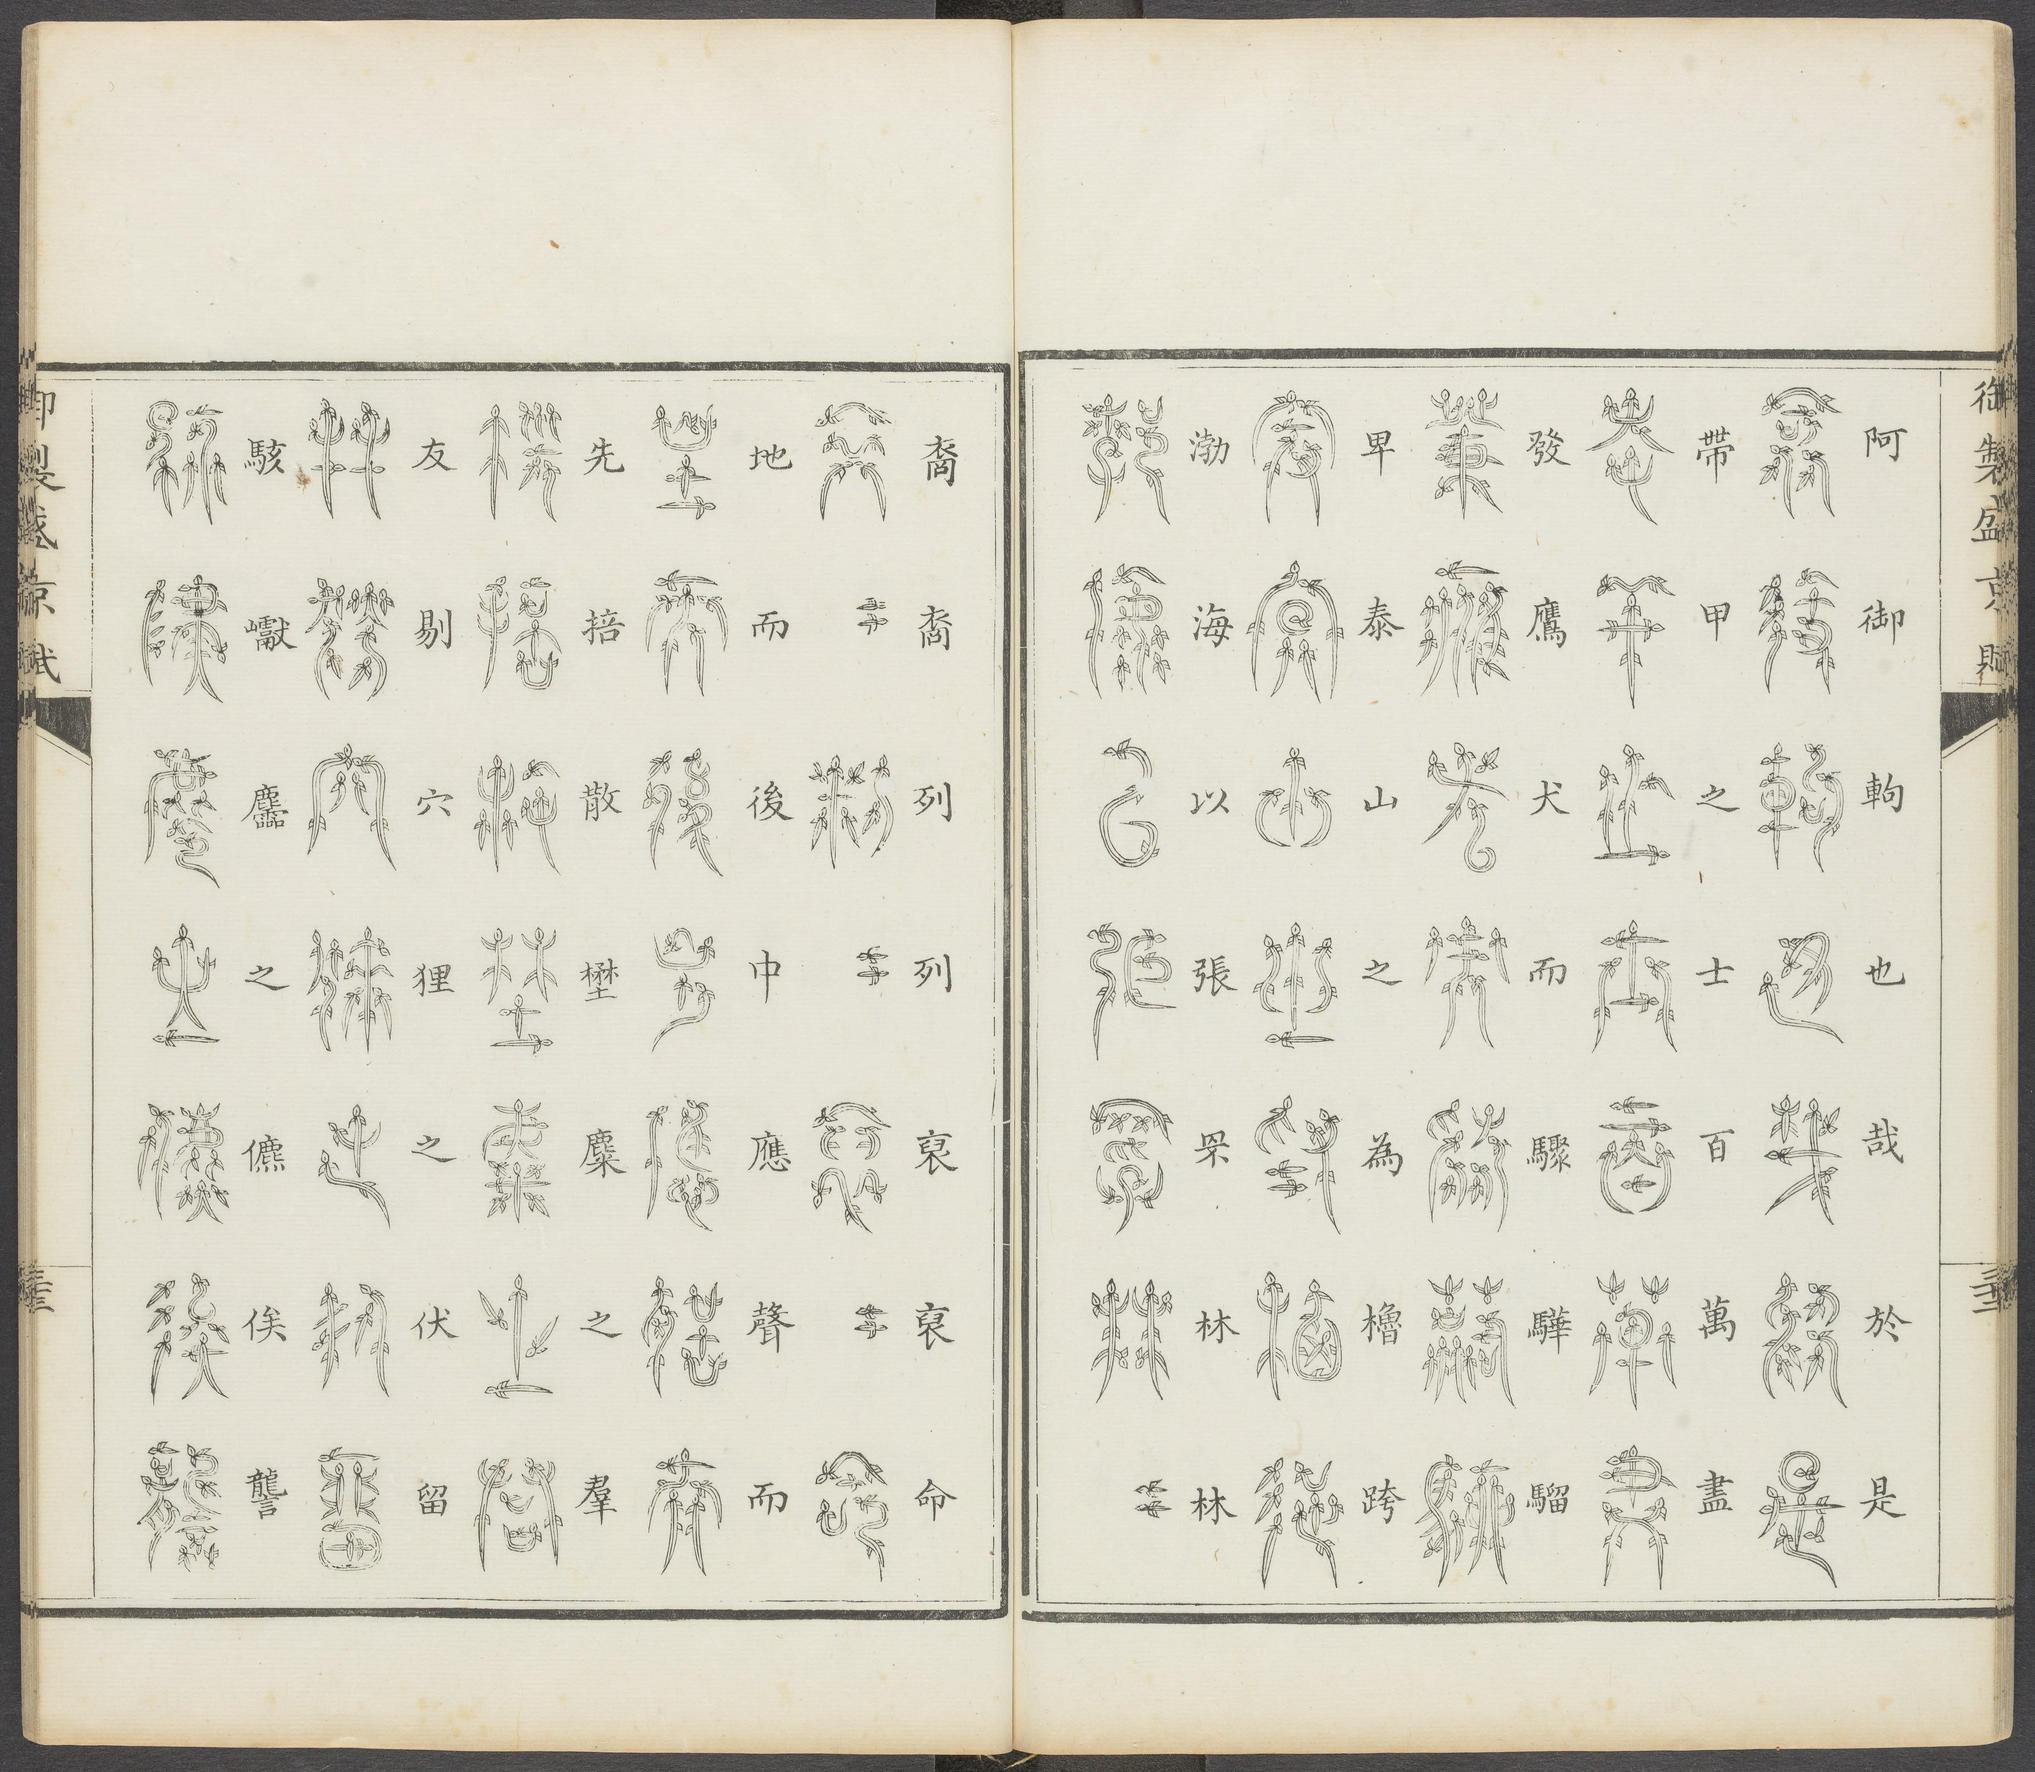 御製盛京賦
阿御軥也哉於是
帶甲之士百萬盡
發鷹犬而驟驊騮
卑泰山之為櫓跨
渤海以張罘林林
裔裔列列裒裒命
地而後中應聲而
先掊散壄麋之羣
友剔穴狸之伏留
駭巘麢之儦俟讋